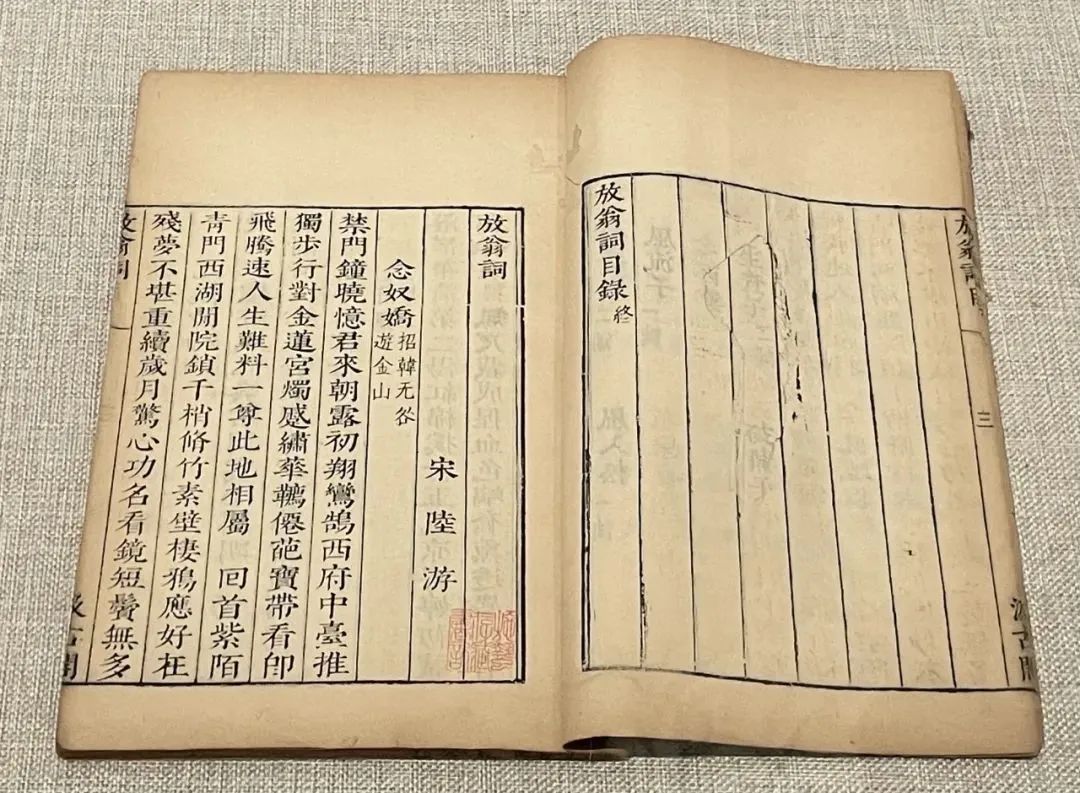 放翁詞目
三
汲古閣
放翁詞目錄終
放翁詞
宋 陸游
念奴嬌 招韓无咎
遊金山
禁門鐘曉憶君來朝露初翔鸞鵠西府中臺推
獨步行對金蓮宮燭蹙繡華韉僊葩寶帶看卽
飛騰速人生難料一尊此地相屬 回首紫陌
青門西湖閒院鎖千梢脩竹素壁棲鴉應好在
殘夢不堪重續歲月驚心功名看鏡短鬢無多
放翁詞
一
汲古閣